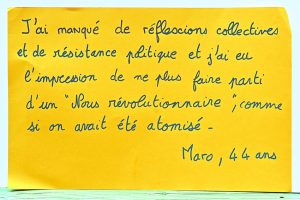 J'ai manqué de réflexions collectives
et de résistance politique et j'ai eu
l'impression de ne plus faire parti
d'un "Nous révolutionnaire", comme
si on avait été atomisé -
Maro, 44 ans